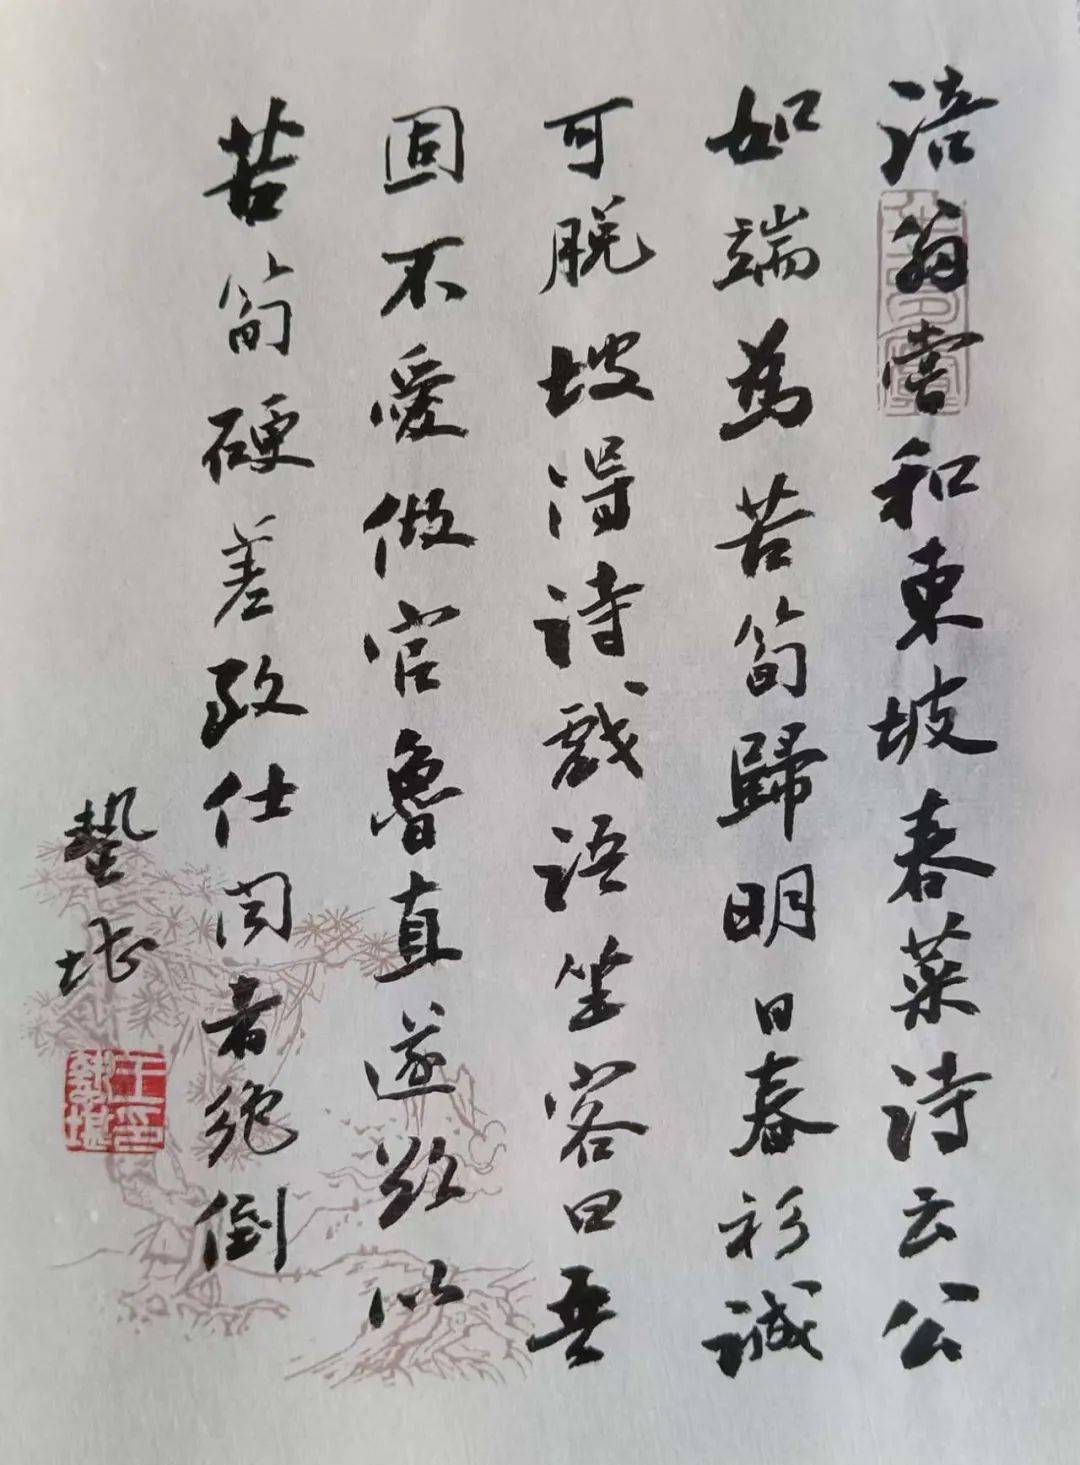 涪翁嘗和東坡春菜詩云公
如端為苦筍歸明日春衫誠
可脱坡得詩戲語坐客曰吾
固不愛做官魯直遂欲以
苦筍硬差致仕聞者絶倒
蟄堪
王印
蟄堪